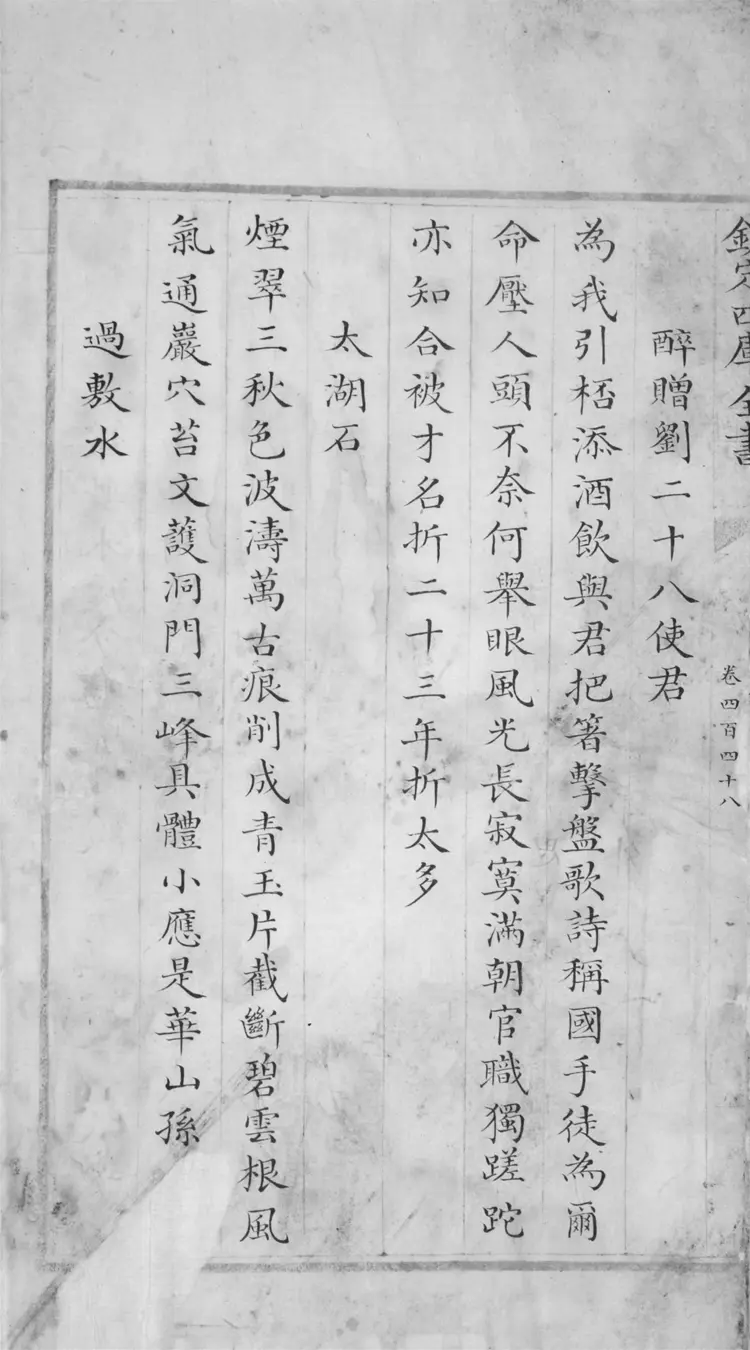 欽定四庫全書
卷四百四十八
醉贈劉二十八使君
為我引桮添酒飲與君把箸擊盤歌詩稱國手徒為爾
命壓人頭不奈何舉眼風光長寂寞滿朝官職獨蹉跎
亦知合被才名折二十三年折太多
太湖石
煙翠三秋色波濤萬古痕削成青玉片截斷碧雲根風
氣通巖穴苔文護洞門三峰具體小應是華山孫
過敷水